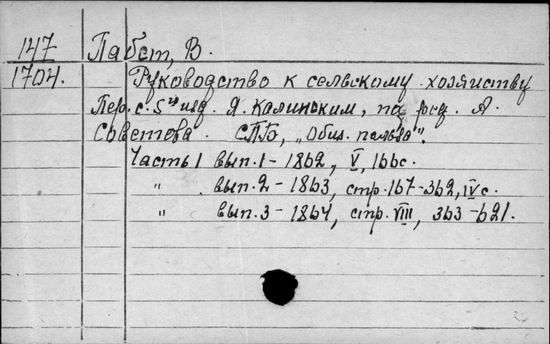 147 Пабст, В.
1704. Руководство к сельскому хозяйству
Пер. с 5го изд. Я. Калинским, под ред. А.
Советова. СПБ, "Общ. польза".
Часть 1 вып. 1 - 1862, V, 166с.
" вып. 2 - 1863, стр. 167-362, IV с.
" вып. 3 - 1864, стр. VIII, 363-621.